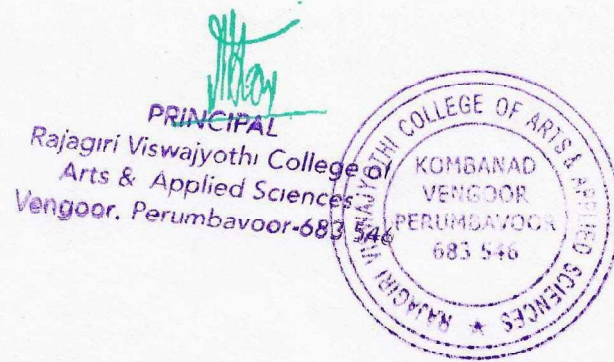 PRINCIPAL
Rajagiri Viswajyothi College of
Arts & Applied Sciences
Vengoor. Perumbavoor-683 546
RAJAGIRI VISWAJYOTHI COLLEGE OF ARTS & APPLIED SCIENCES ★
KOMBANAD
VENGOOR
PERUMBAVOOR
683 546